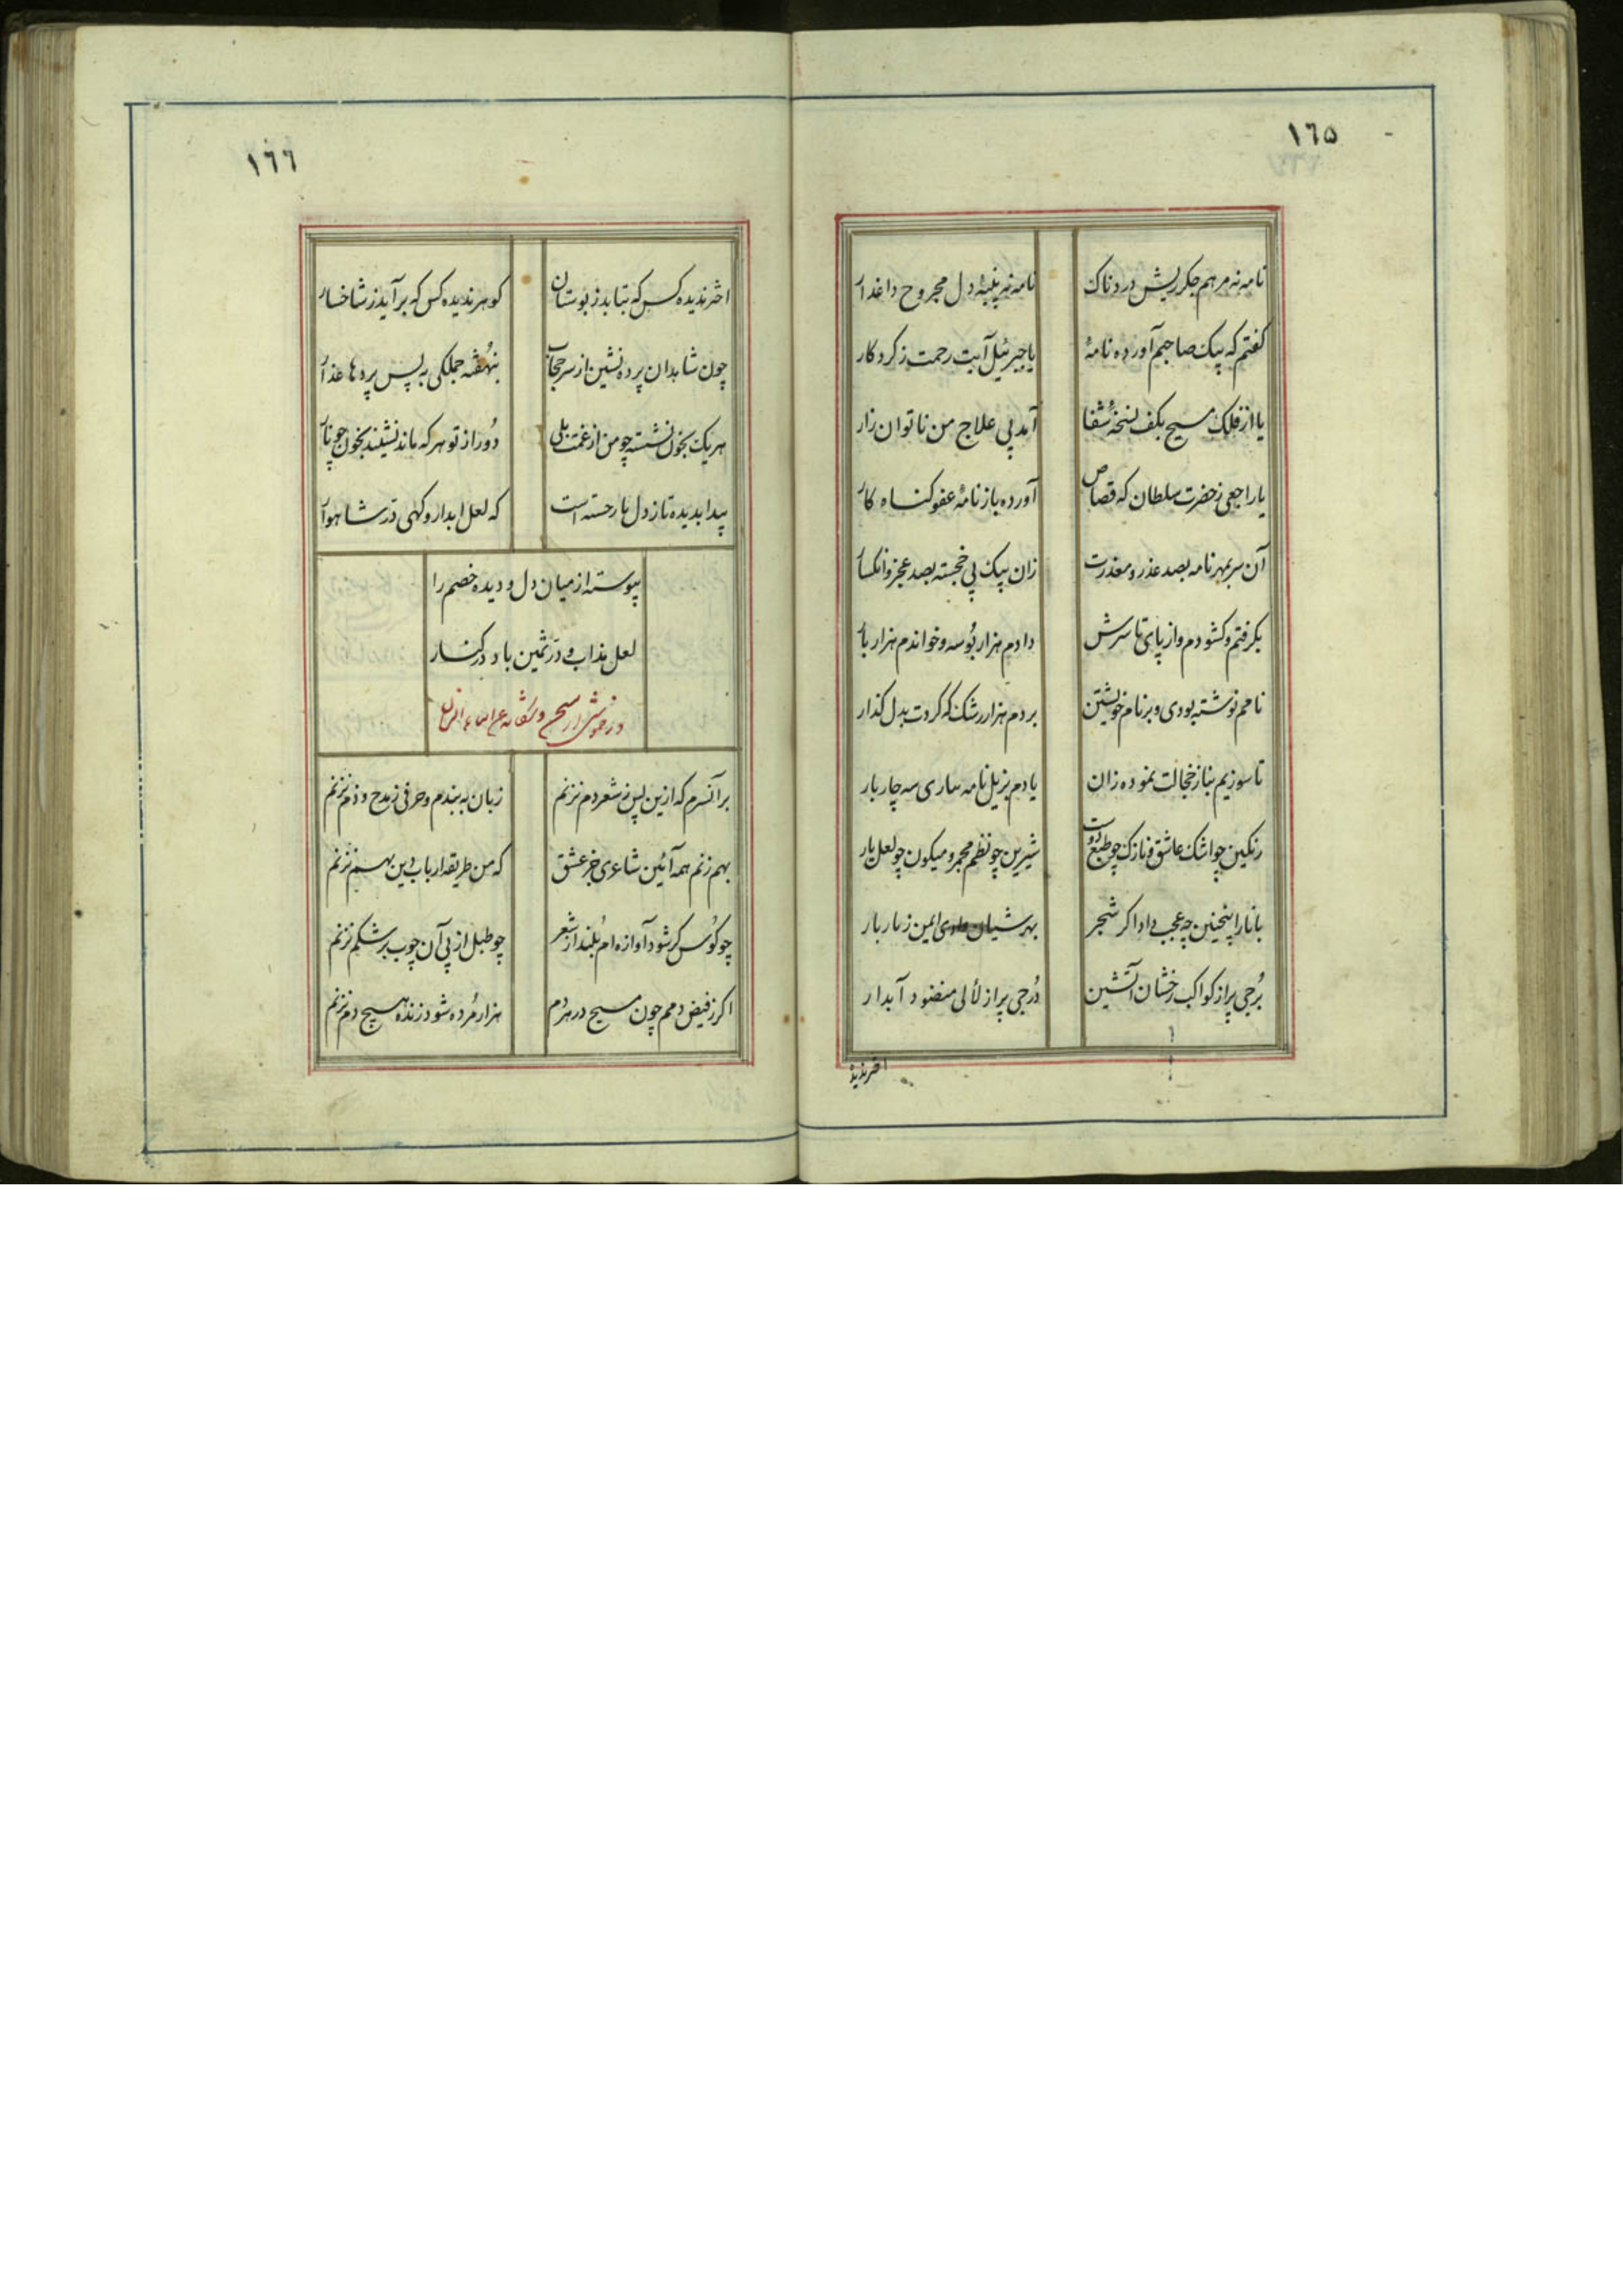 ١٦٥
نامه نه مرهم جکر ریش دردناک نامه نه پنبهٔ دل مجروح داغدار
کفتم که پیک صاحبم آورده نامهٔ یا جبرئیل آیت رحمت ز کردکار
یا از فلک مسیح بکف نسخهٔ شفا آمد پی علاج من ناتوان زار
یا راجعی ز حضرت سلطان که قصاص آورده باز نامهٔ عفو کناه کار
آن سر بمهر نامه بصد عذر و معذرت زان پیک پی خجسته بصد عجز و انکسار
بکرفتم و کشودم و از پای تا سرش دادم هزار بوسه و خواندم هزار بار
نامم نوشته بودی و بر نام خویشتن بردم هزار رشک که کردت بدل کذار
تا سوزیم بناز خجالت نموده زان یادم بزیل نامه ساری سه چار بار
رنکین چو اشک عاشق و نازک چو طبع دوست شیرین چو نظم مجمر و میکون چو لعل یار
با نار اینچنین چه عجب دادا کر شجر بهر شبان وادی ایمن ز نار بار
بُرجی پر از کواکب رخشان آتشین دُرجی پر از لألی منضود آبدار
اختر ندیده
١٦٦
اختر ندیده کس که بتابد ز بوستان کوهر ندیده کس که برآید ز شاخسار
چون شاهدان پرده نشین از سر حجاب بنهُفته جملکی به پس پرده‌ها عذار
هر یک بخون نشسته چو من از غمت بلی دُور از تو هر که ماند نشیند بخون چو نار
پیدا بدیده تا ز دل یار خسته است که لعل ابدار و کهی دُر شاهوار
پیوسته از میان دل و دیده خصم را
لعل مذاب و دُر ثمین باد در کنار
در خموشی از
بر آنسرم که ازین پس ز شعر دم نزنم زبان به بندم و حرفی ز مدح و ذم نزنم
بهم زنم همه آئین شاعری جز عشق که من طریقه ارباب دین بهم نزنم
چو کوُس کر شود آوازه ام بُلند از شعر چو طبل از پی آن چوب بر شکم نزنم
اکر ز فیض دمم چون مسیح در هر دم هزار مُرده شود زنده هیچ دم نزنم